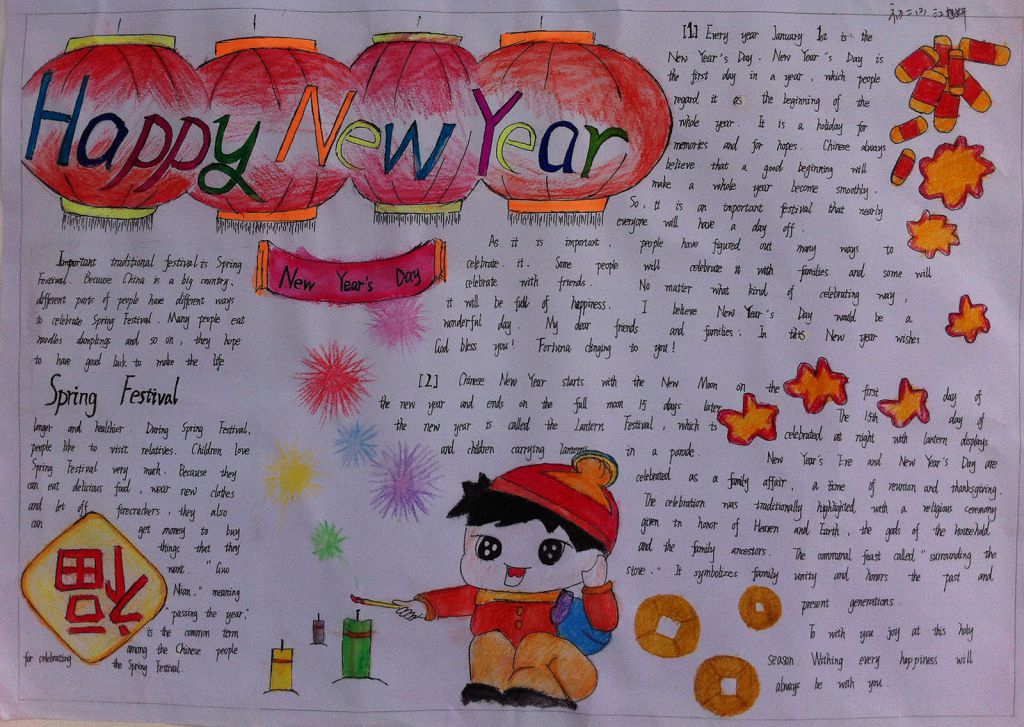 Happy New Year
New Year's Day
[1] Every year January 1st is the
New Year's Day. New Year's Day is
the first day in a year, which people
regard it as the beginning of the
whole year. It is a holiday for
memories and for hopes. Chinese always
believe that a good beginning will
make a whole year become smoothly.
So, it is an important festival that nearly
everyone will have a day off.
As it is important, people have figured out many ways to
celebrate it. Some people will celebrate it with families and some will
celebrate with friends. No matter what kind of celebrating way,
it will be full of happiness. I believe New Year's Day would be a
wonderful day. My dear friends and families. In this New year wishes
God bless you! Fortuna clinging to you!
Important traditional festival is Spring
Festival. Because China is a big country,
different parts of people have different ways
to celebrate Spring Festival. Many people eat
noodles dumplings and so on, they hope
to have good luck to make the life
Spring Festival
longer and healthier. During Spring Festival,
people like to visit relatives. Children love
Spring Festival very much. Because they
can eat delicious food, wear new clothes
and let off forecreckers, they also
can get money to buy
things that they
want. "Guo
Nian." meaning
"passing the year,"
is the common term
among the Chinese people
for celebrating the Spring Festival.
福
[2] Chinese New Year starts with the New Moon on the first day of
the new year and ends on the full moon 15 days later. The 15th day of
the new year is called the Lantern Festival, which is celebrated at night with lantern displays
and children carrying lanterns in a parade. New Year's Eve and New Year's Day are
celebrated as a family affair, a time of reunion and thanksgiving.
The celebration was traditionally highlighted with a religious ceremony
given in honor of Heaven and Earth, the gods of the household
and the family ancestors. The communal feast called "surrounding the
stove." It symbolizes family unity and honors the past and
present generations.
To with you joy at this holy
season. Withing every happiness will
always be with you.